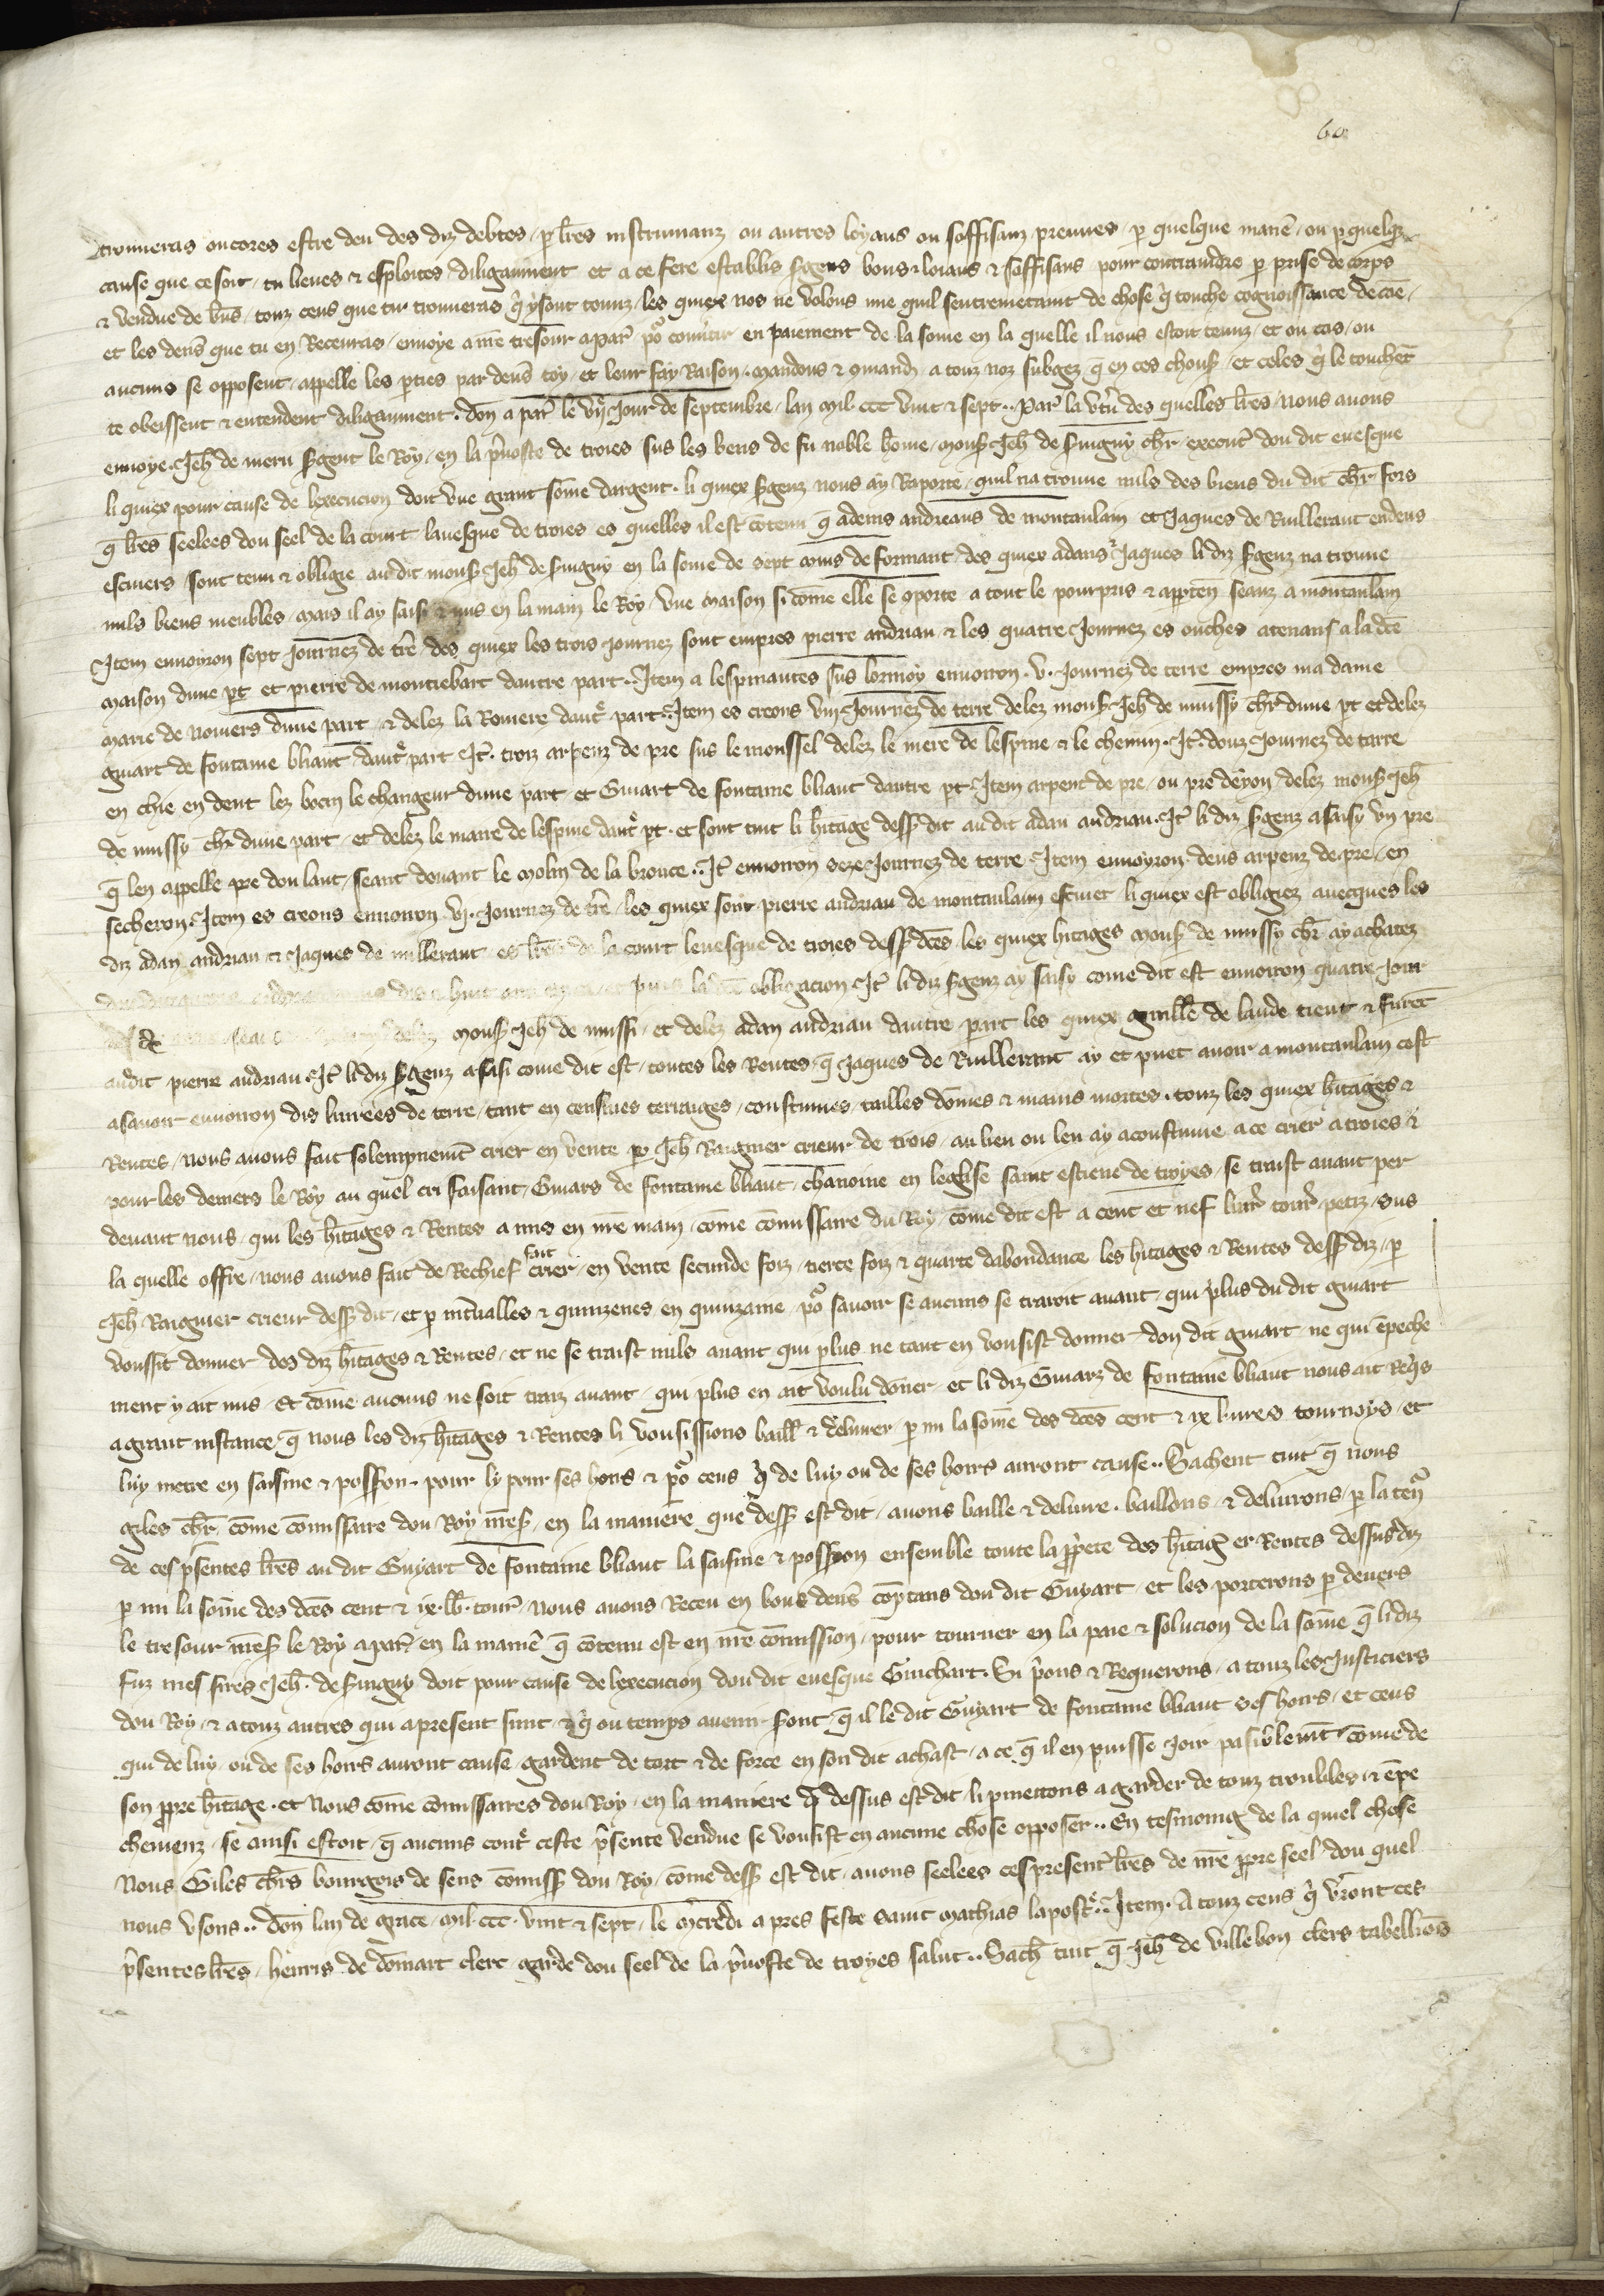 60
trouveras oncores estre deu des diz debtes, p lres instrumanz ou autres loyaus ou soffisanz preuves, p quelque maniē, ou p quelq̄
cause que ce soit, tu lieves & esploites diligaument et a ce fere establis sgens bons & loiaus & soffisans pour contraindre p prise de corps
& vendue de biēs, touz ceus que tu trouveras q̄ y sont tenuz, les quiex nos ne volons mie quil sentremetaint de chose q̄ touche cognoissance de cae,
et les deniers que tu en Recevras, envoye a nre tresour a par' po' convtir en paiement de la some en la quelle il nous estoit tenuz, et ou cas, ou
aucuns se opposent, appelle les pties par devs toy, et leur fay Raison. Mandons & cmand a touz noz subgez q̄ en ces chous', et celes q̄ le touchēt
te obeissent & entendent diligaument. don a par' le vij jour de septembre, lan mil ccc vint & sept.. Par la vtu des quelles lres, nous avons
envoye Jeh de meru sgent le Roy, en la pvoste de troies sus les biens de fu noble home, mons' Jeh de singuy chr, execut' dou dit evesque
li quiex pour cause de lexecucion doit une grant some dargent. li quiex sgenz nous ay Raporte, quil na trouve nuls des biens du dit chr fors
q̄ lres seelees dou seel de la court lavesque de troies es quelles il est cōtenu q̄ adenis andreaus de montaulain et Jaques de Ruillerant endeus
escuiers sont tenu & obligie au dit mons' Jeh de singuy en la some de sept muis de formant, des quiex adans & Jaques li diz sgenz na trouve
nuls biens meubles, mais il ay saisi & mis en la main le Roy, une maison si cōme elle se cporte a tout le pourpris & apptēn seanz a montaulain
Item environ sept journez de tre, des quiex les trois journez sont empres pierre andriau & les quatre journez es ouches atenans a la dce
maison dune pt et pierre de montiebart dautre part. Item a lespinantes sus lormoy environ .v. journez de terre empres ma dame
marie de noviers dune part, & delez la Roviere daut' part. Item es creons viij journez de terre delez mons' Jeh de muissy chr dune pt et delez
guiart de fontaine bliaut daut' part It'. trois arpenz de pre sus le moussel delez le mere de lespine & le chemin. It'. douz journez de tarre
en chie en dent lez bocin le changeur dune part, et Guiart de fontaine bliaut dautre pt Item arpent de pre, ou pre deyon, delez mons' Jeh
de mussy chr dune part, et delez le maire de lespine daut' pt. et sont tuit li hitage dess' dit au dit adan andriau. It' li diz sgenz a saisy un pre
q̄ len appelle pre dou lant, seant devant le molin de la brouce.. It' environ seze journez de terre Item environ deus arpenz de pre, en
secheron. Item es creons environ .vj. journez de tre, les quiex sont pierre andriau de montaulain escuier li quiex est obligiez avecques les
diz adan andriau & Jaques de ruillerant es lres de la court levesque de troies dess' dces. les quiex hitages mons' de mussy chr ay achatez
puis la dce obligacion It' li diz sgenz ay saisy come dit est environ quatre jour
mons' Jeh de mussi, et delez adan andriau dautre part les quiex guille de laude tient & furēt
au dit pierre andriau. It' li diz sgenz a saisi come dit est, toutes les Rentes, q̄ Jaques de Ruillerant ay et puet avoir a montaulain cest
asavoir environ dis livrees de terre, tant en censives terrages, coustumes, tailles dōmes & mains mortes. touz les quiex hitages &
Rentes, nous avons fait solempnemt crier en vente p Jeh Raignier crieur de trois, au lieu ou len ay acoustume a ce crier a troies &
pour les deniers le Roy au quel cri faisant, Guiars de fontaine bliaut chanoine en leglise saint estiene de troyes, se traist avant per
devant nous, qui les hitages & Rentes a mis en nre main, cōme cōmissaire du Roy, cōme dit est a cent et nef livr' tour' petiz, sus
la quelle offre, nous avons fait de Rechief fait crier, en vente secunde foiz, tierce foiz & quarte dabondance les hitages & Rentes dess' diz, p
Jeh Raignier crieur dess' dit, et p intvalles & quinzenes en quinzaine, po' savoir se aucuns se trairoit avant, qui plus du dit guiart
voussit donner des diz hitages & Rentes, et ne se traist nuls avant qui plus ne tant en vousist donner dou dit guiart, ne qui ēpeche
ment y ait mis. Et cōme aucuns ne soit traiz avant, qui plus en ait voulu dōner, et li diz Guiarz de fontaine bliaut nous ait Req̄s
a grant instance, q̄ nous les diz hitages & Rentes li vousissions baill' & delivrer p mi la some des dces cent & ix livres tournoys, et
luy metre en saisine & possion. pour ly pour ses hoirs & po' ceus q̄ de luy ou de ses hoirs auront cause.. Sachent tuit q̄ nous
giles chr cōme cōmissaire dou Roy nres', en la maniere que dess' est dit, avons baille & delivre. baillons, & delivrons, p la ten'
de ces psentes lres au dit Guyart de fontaine bliaut la saisine & possion ensemble toute la ppiete des hitag' et Rentes dessusdiz
p mi la some des dces cent & ix. lb. tour' nous avons Receu en bons devs cōptans dou dit Guyart, et les porterons p devers
le tresour nres' le Roy a par' en la maniē q̄ cōtenu est en nre cōmission, pour tourner en la paie & solucion de la some q̄ li diz
fuz mes sires Jeh. de singuy doit pour cause de lexecucion dou dit evesque Guichart. Si pons & Requerons, a touz les justiciers
dou Roy, & a touz autres qui a present sunt, & q̄ ou temps avenir sront, q̄ il le dit Guyart de fontaine bliaut ses hoirs, et ceus
qui de luy, ou de ses hoirs auront cause, gardent de tort & de force en son dit achast, a ce q̄ il en puisse joir pasiblemt cōme de
son ppre hitage. et nous cōme cōmissaires dou Roy, en la maniere q̄ dessus est dit, li pmettons a garder de touz troubles & ēpe
chemenz, se ainsi estoit, q̄ aucuns cont' ceste psente vendue se vousist en aucune chose opposer.. En tesmoing de la quiel chose
Nous Giles chrs bourgois de sens cōmiss' dou Roy, cōme dess' est dit, avons seelees ces present' lres de nre ppre seel dou quel
nous usons.. don lan de grace, mil. ccc. vint & sept, le mcredi apres feste saint mathias lapost'. Item. A touz ceus q̄ vront ces
psentes lres, henris de dōmart clerc garde dou seel de la pvoste de troyes salut.. Sach' tuit q̄ Jeh de villebon clers tabellions